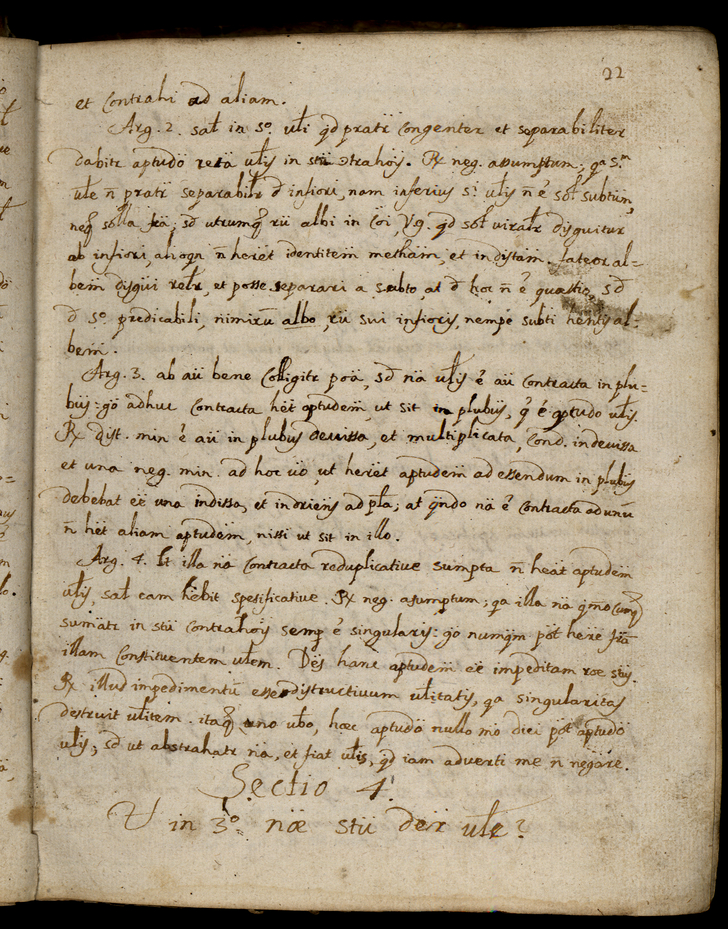 22
et contrahi ad aliam.
Arg. 2. salt. in so. uli qd pratr congenter et separabiliter
dabitr aptudo retä ulis in stü contrahois. Rx neg. assumptum; qa S.m
ule n̄ pratr separabilr d infiori, nam inferius s.i ulis n̄ ē sol subtum,
neq solla fra; sd utrumq rü albi in Coi, Vg. qd sol viratr disguitur
ab infiori, aliogn n̄ heret identitem metham, et indistam. fateor al=
bem disgui relr, et posse separari a subto, at d hoc n̄ ē quastio, sd
d so. predicabili, nimirū albo, rü sui infioris, nempe subti hentis al-
bem.
Arg. 3. ab aü bene colligitr poä, sd nä ulis ē aü contracta in plu=
bus: go adhuc contracta hët aptudem, ut sit in plubus, q ē aptudo ulis.
Rx dist. min ē aü in plubus devissa, et multiplicata, Cond. indevissa
et una neg. min. ad hoc üo, ut heret aptudem ad essendum in plubus
debebat eë una indissa, et indriens ad pla; at qndo nä ē contracta ad unū
n̄ hët aliam aptudem, nissi ut sit in illo.
Arg. 4. Et illa nä contracta reduplicative sumpta n̄ heat aptudem
ulis, salt eam hebit spesificative. Rx neg. asumptum; qa illa nä qmocunq
sumatr in stü contrahois semp ē singularis: go numqm pot here frä
illam constituentem ulem. Dës hanc aptudem eë impeditam roe stus.
Rx illud impedimentū esse distructivum ulitatis, qa singularitas
destruit ulitem. itaq uno vbo, hæc aptudo nullo mo dici pot aptudo
ulis; sd ut abstrahatr nä, et fiat ulis, qd iam adverti me n̄ negare.
Sectio 4.
V in 3o. næ stü detr ule?